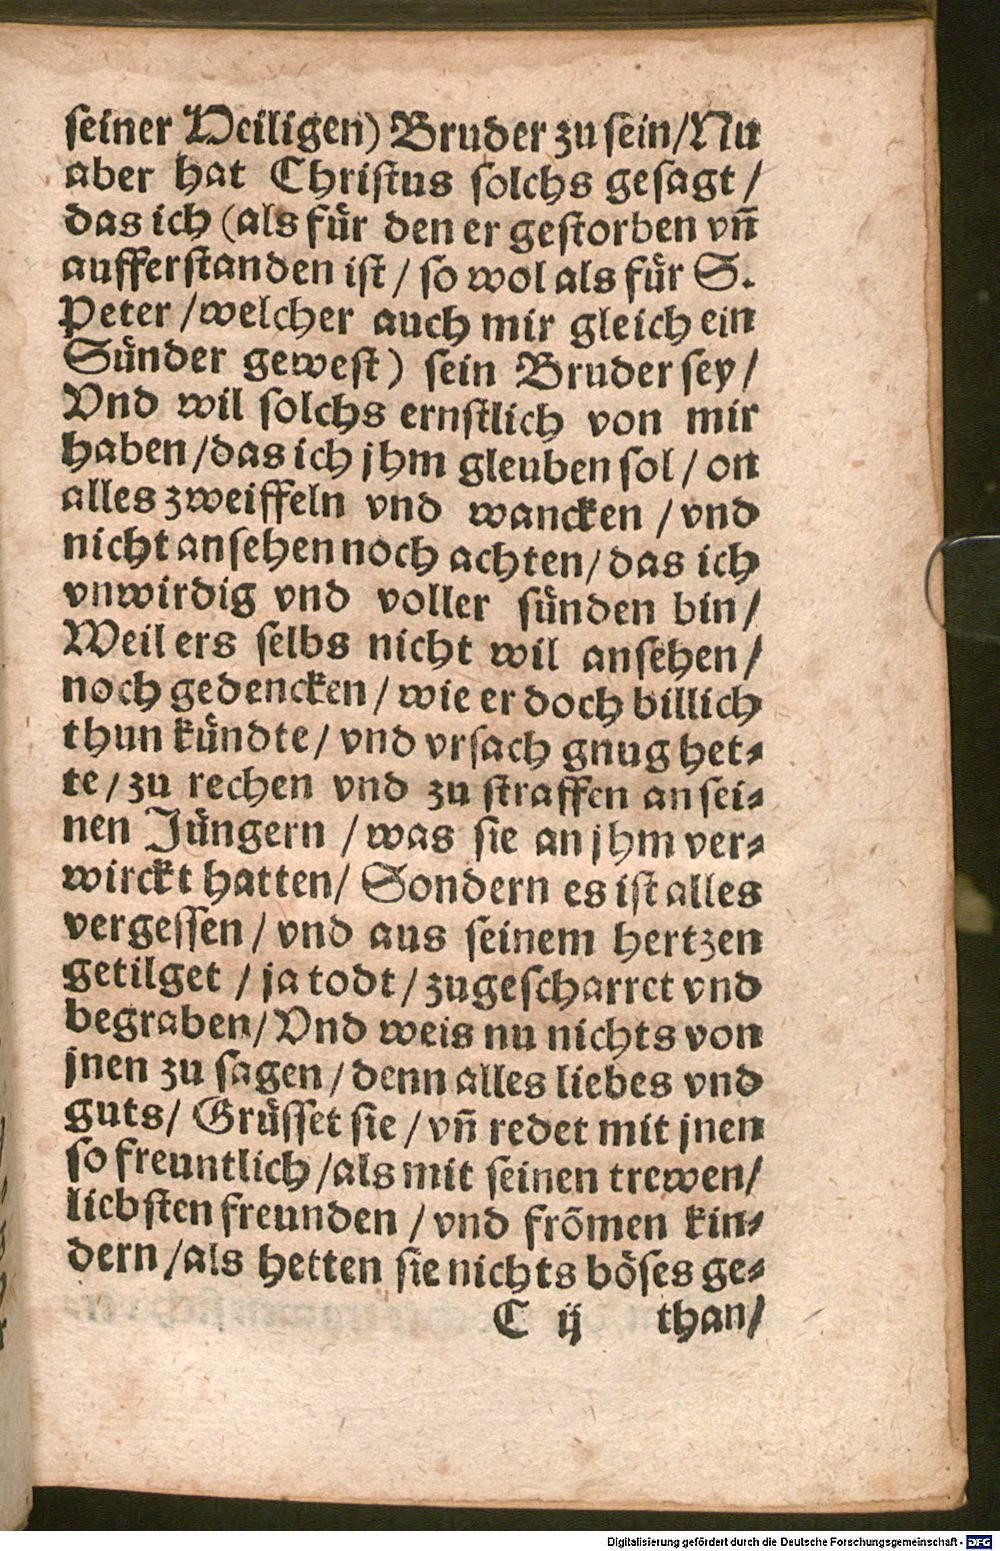 seiner Heiligen) Bruder zu sein/Nu
aber hat Christus solchs gesagt/
das ich (als für den er gestorben vñ
aufferstanden ist/ so wol als für S.
Peter/welcher auch mir gleich ein
Sünder gewest) sein Bruder sey/
Vnd wil solchs ernstlich von mir
haben/das ich jhm gleuben sol/ on
alles zweiffeln vnd wancken/vnd
nicht ansehen noch achten/das ich
vnwirdig vnd voller sünden bin/
Weil ers selbs nicht wil ansehen/
noch gedencken/wie er doch billich
thun kündte/vnd vrsach gnug het-
te/zu rechen vnd zu straffen an sei-
nen Jüngern/was sie an jhm ver-
wirckt hatten/ Sondern es ist alles
vergessen/vnd aus seinem hertzen
getilget/ja todt/zugescharret vnd
begraben/Vnd weis nu nichts von
jnen zu sagen/denn alles liebes vnd
guts/ Grüsset sie/vñ redet mit jnen
so freuntlich/als mit seinen trewen/
liebsten freunden/vnd frömen kin-
dern/als hetten sie nichts böses ge-
C ij than/
Digitalisierung gefördert durch die Deutsche Forschungsgemeinschaft - DFG